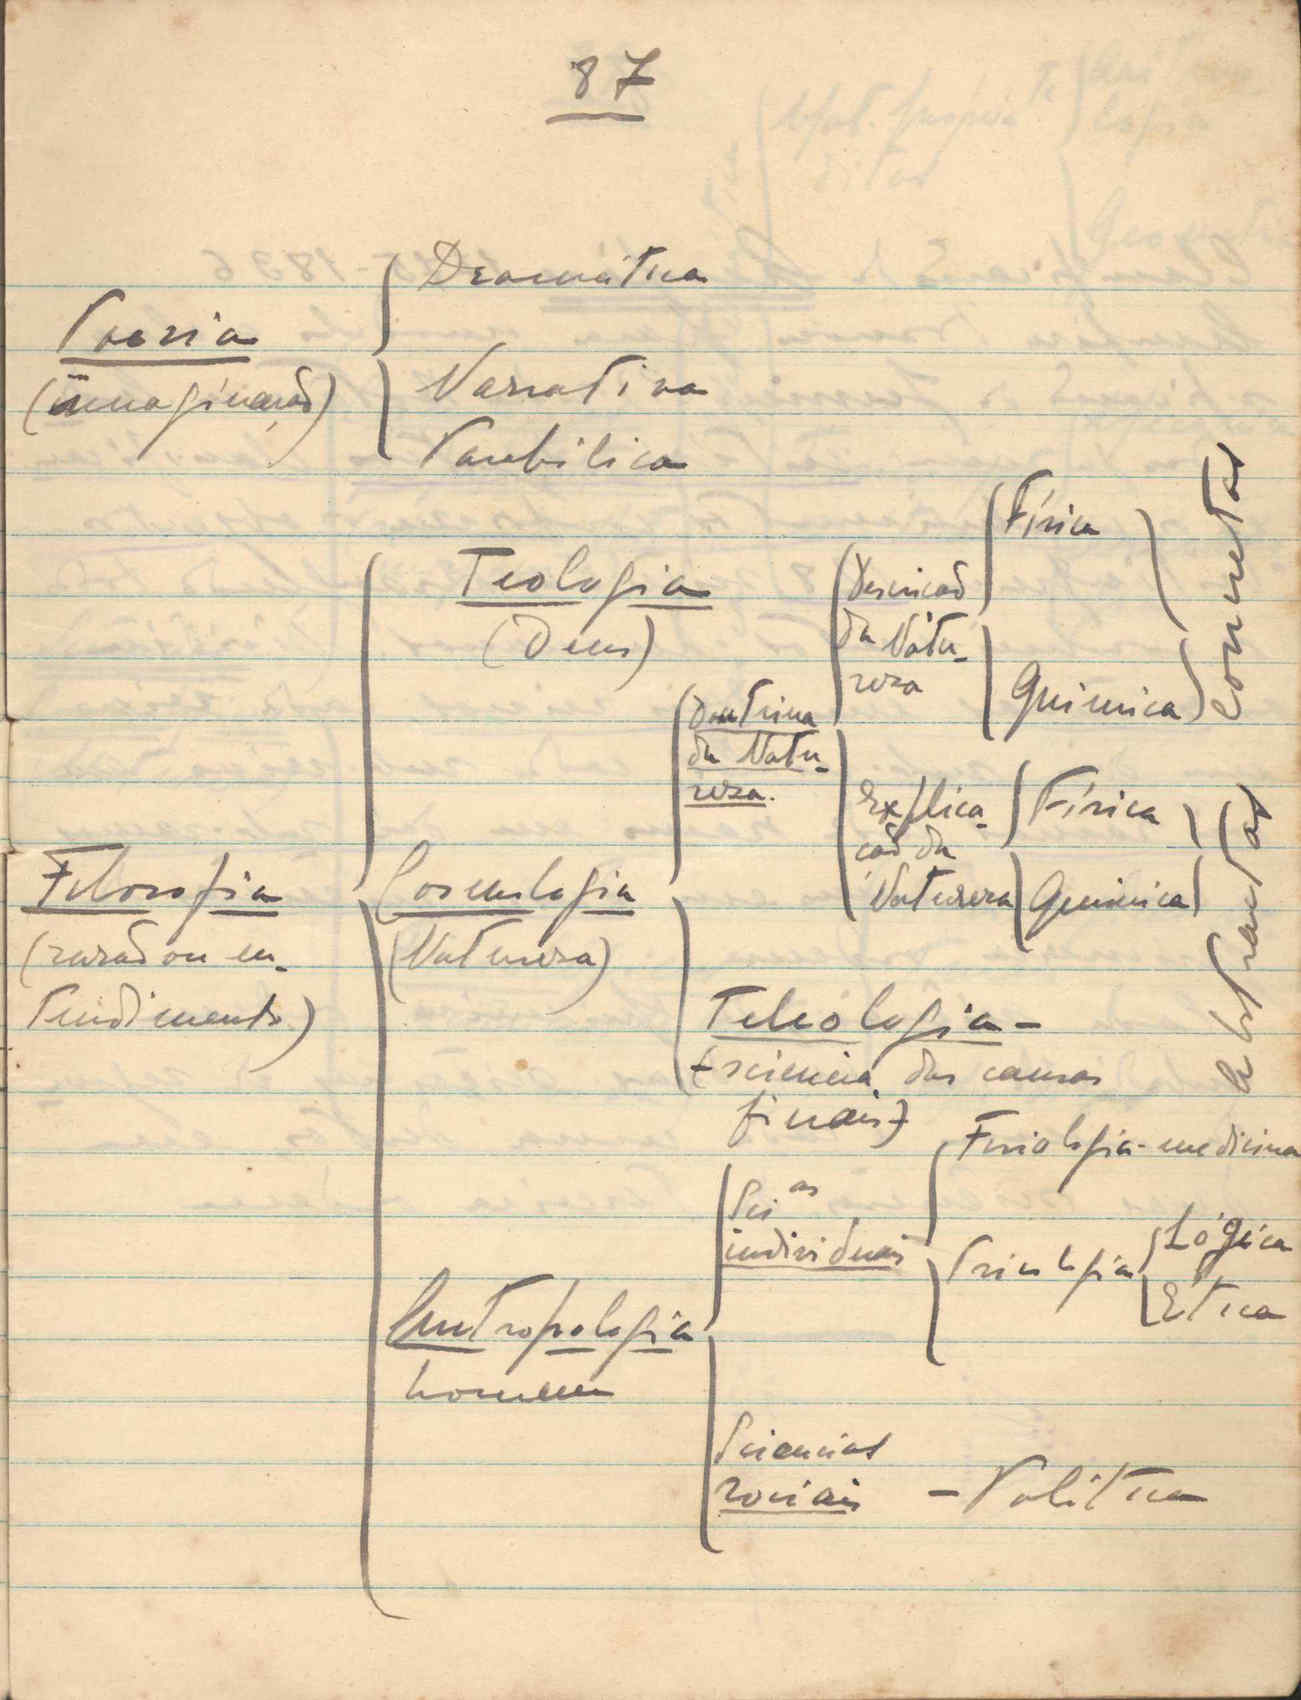 87
Poesia
(imaginação)
Dramática
Narrativa
Parabilica
Filosofia
(rasão ou en-
tendimento)
Teologia
(Deus)
Cosmologia
(Natureza)
Doutrina
da Natu-
reza.
Descrição
da Natu-
reza
Física
Química
concretas
Explica-
ção da
Natureza
Física
Química
abstractas
Teleologia -
(sciencia das causas
finais)
Antropologia
homem
Sci as
individuais
Fisiologia - medicina
Psicologia
Lógica
Ética
Sciencias
sociais - Politica